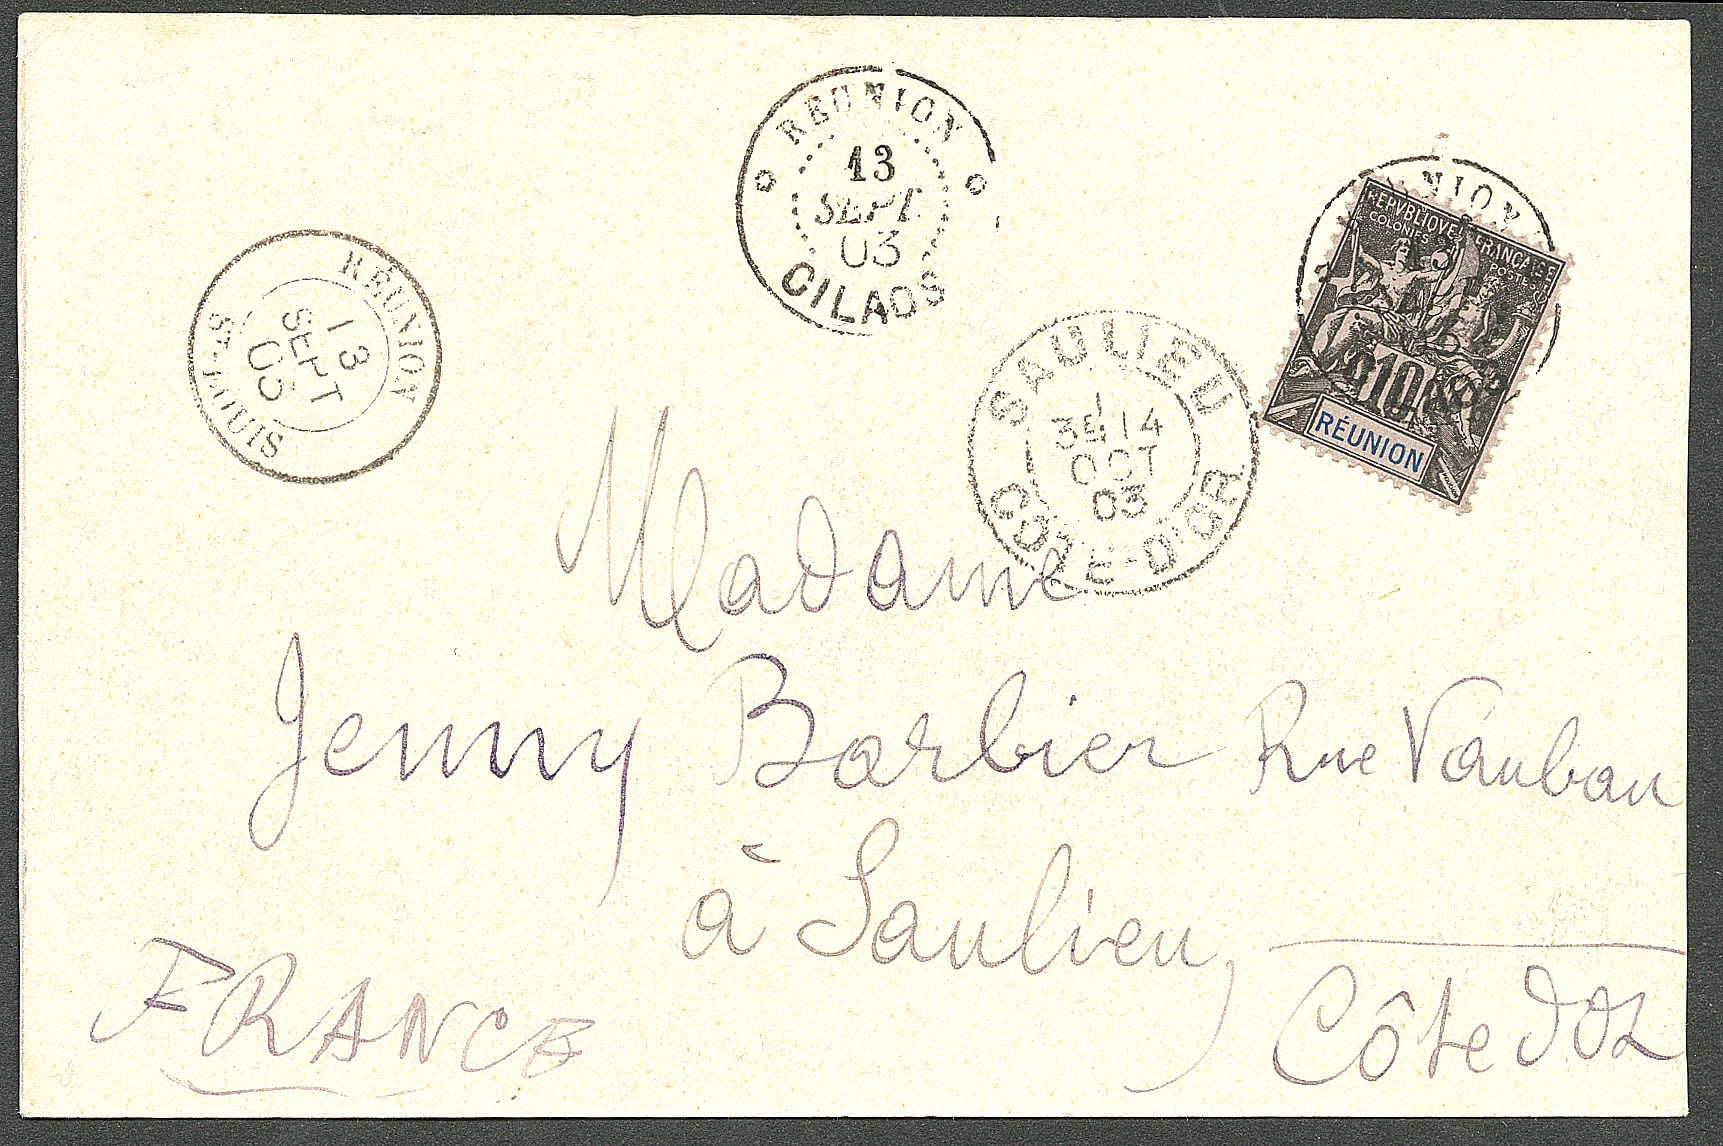 RÉUNION
13
SEPT
03
CILAOS
RÉUNION
13
SEPT
03
ST-LOUIS
NION
REPVBLIQVE FRANÇAISE
COLONIES POSTES
10
RÉUNION
SAULIEU
1
3E 14
OCT
03
COTE-D'OR
Madame
Jenny Barbier Rue Vauban
à Saulieu,
FRANCE
Côte d'Or